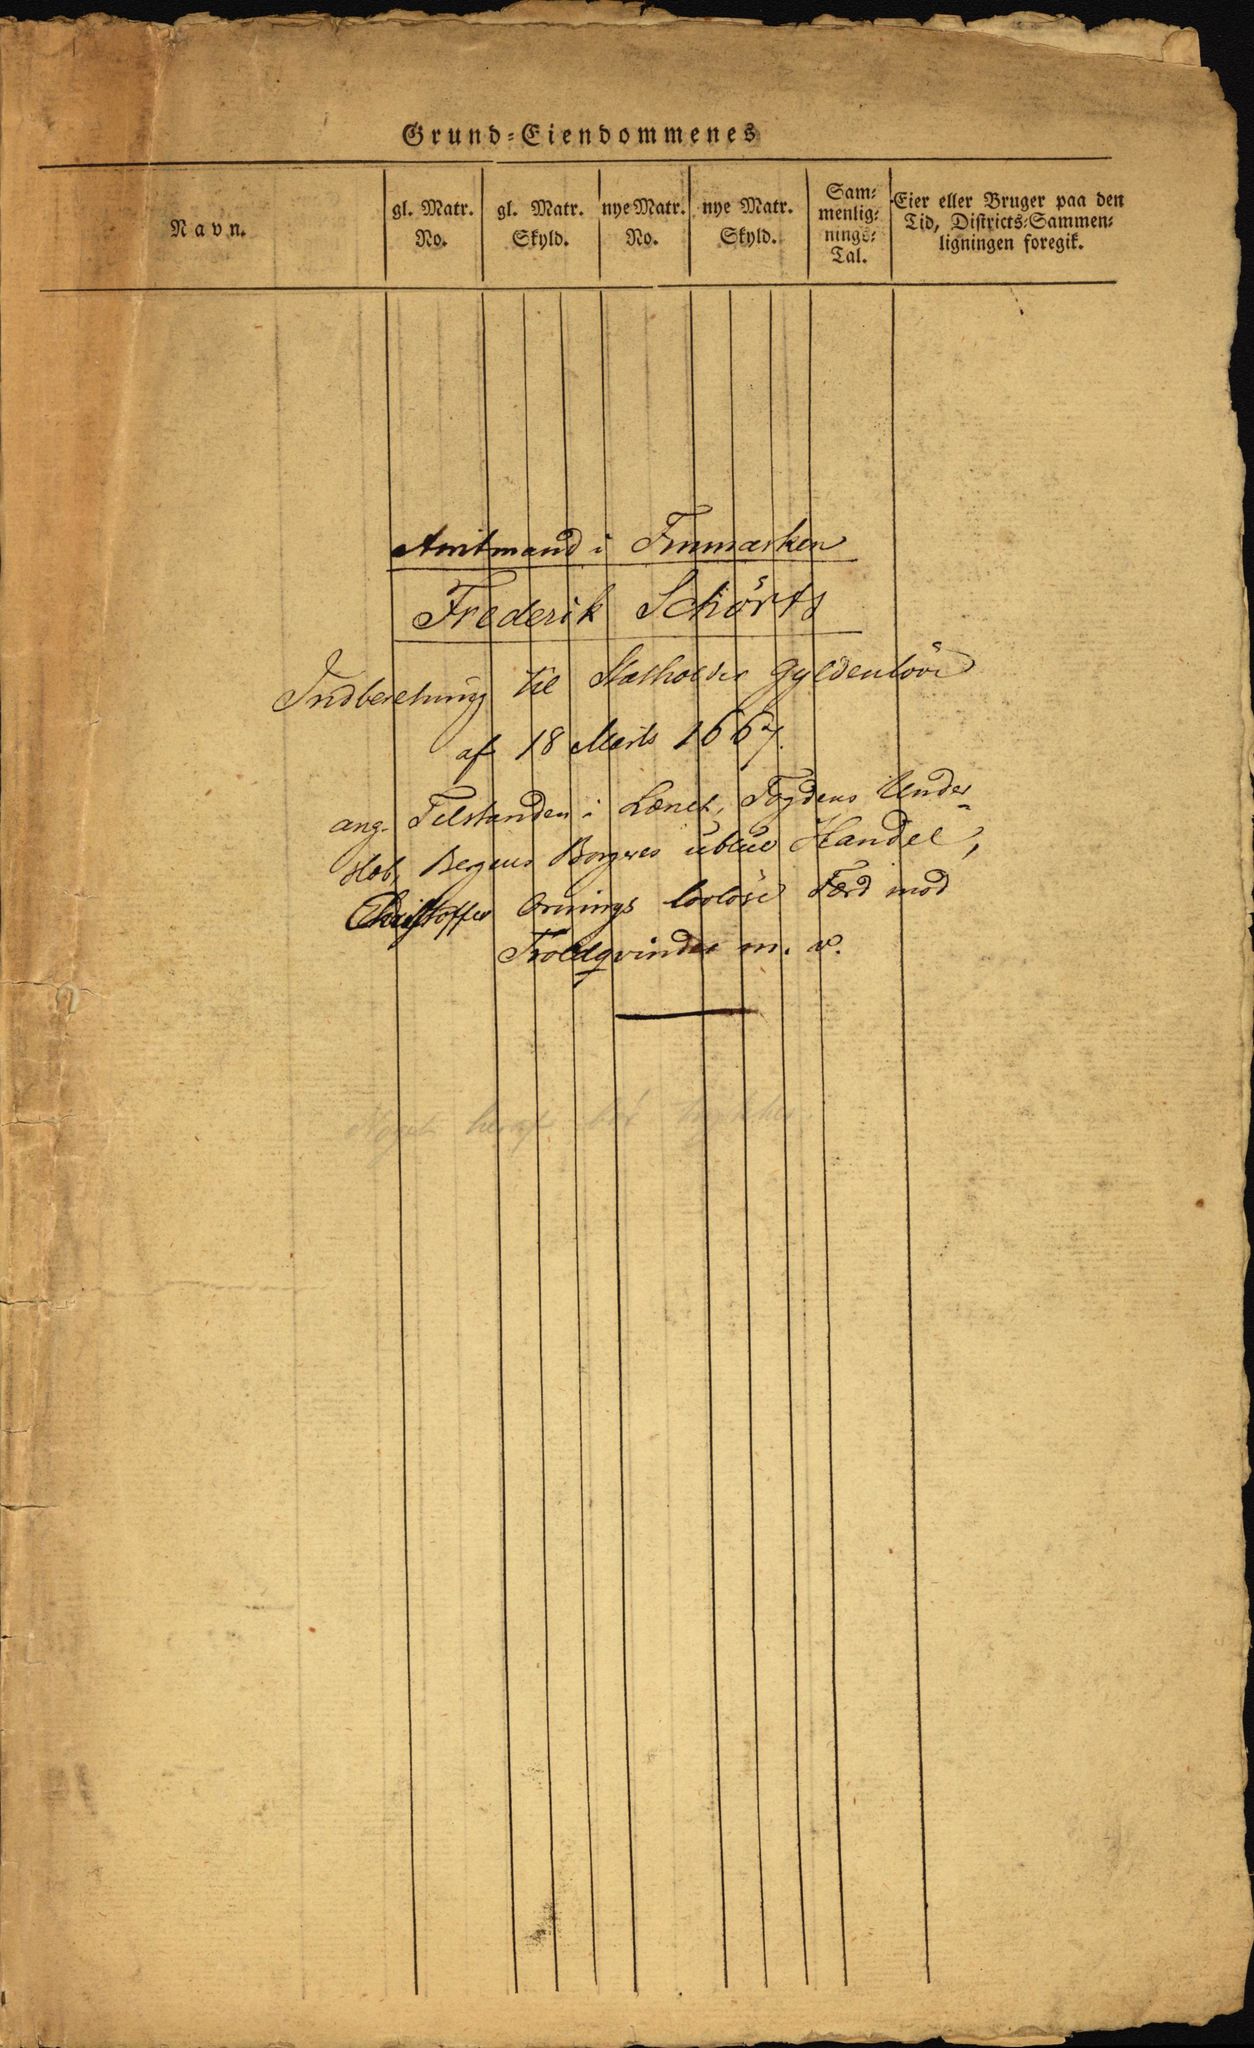 Grund-Eiendommenes
Navn.
gl. Matr.
No.
gl. Matr.
Skyld.
nye Matr.
No.
nye Matr.
Skyld.
Sam-
menlig-
nings-
Tal.
Eier eller Bruger paa den
Tid, Districts-Sammen-
ligningen foregik.
Amtmand i Finmarken
Frederik Schörts
Indberetning til Statholder Gyldenlöve
af 18 Marts 1667.
ang. Tilstanden i Lænet, Fogdens Under-
slæb, Bergens Borgeres ublue Handel,
Christoffer Ornings lovlöse Færd mod
Troldqvinder m. v.
Noget heraf bör trykkes.